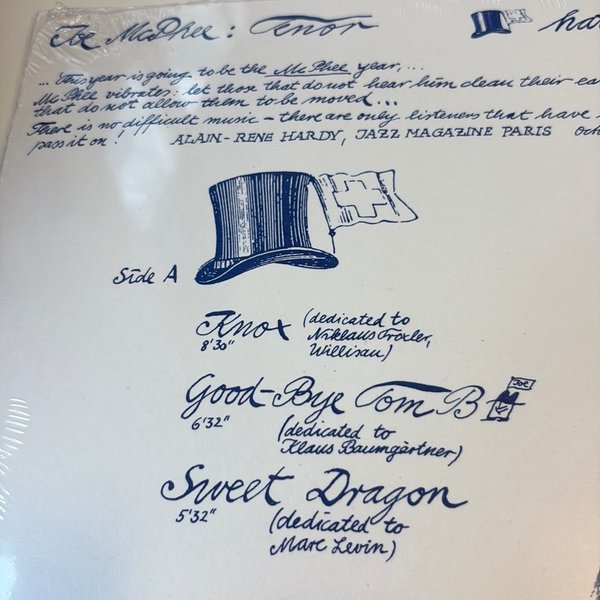 Joe McPhee: Tenor
... This year is going to be the McPhee year,...
McPhee vibrates: let those that do not hear him clean their ea
that do not allow them to be moved...
There is no difficult music – there are only listeners that have
pass it on! ALAIN-RENE HARDY, JAZZ MAGAZINE PARIS
Side A
Knox (dedicated to
8'30" Niklaus Troxler,
Willisau)
Good-Bye Tom B
Joe
6'32" (dedicated to
Klaus Baumgärtner)
Sweet Dragon
5'32" (dedicated to
Marc Levin)